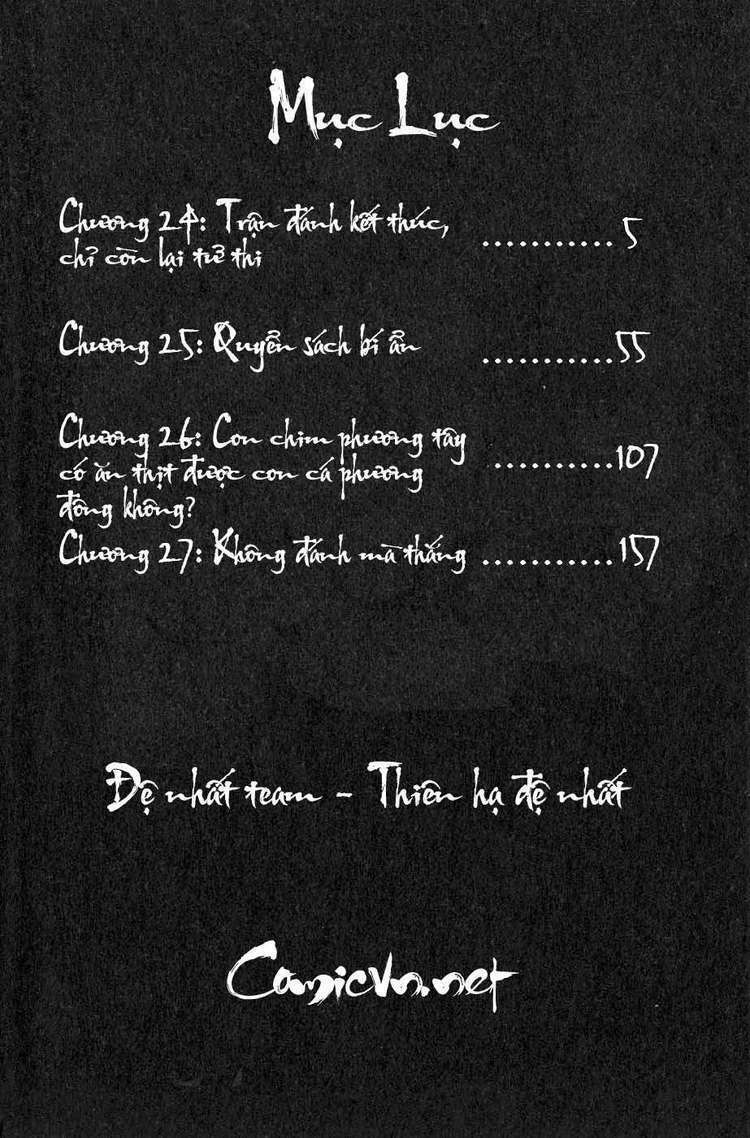 Mục Lục
Chương 24: Trận đánh kết thúc, chỉ còn lại tử thi ............ 5
Chương 25: Quyển sách bí ẩn ............ 55
Chương 26: Con chim phương tây có ăn thịt được con cá phương đông không? ........... 107
Chương 27: Không đánh mà thắng ............ 157
Đệ nhất team - Thiên hạ đệ nhất
Comicvn.net